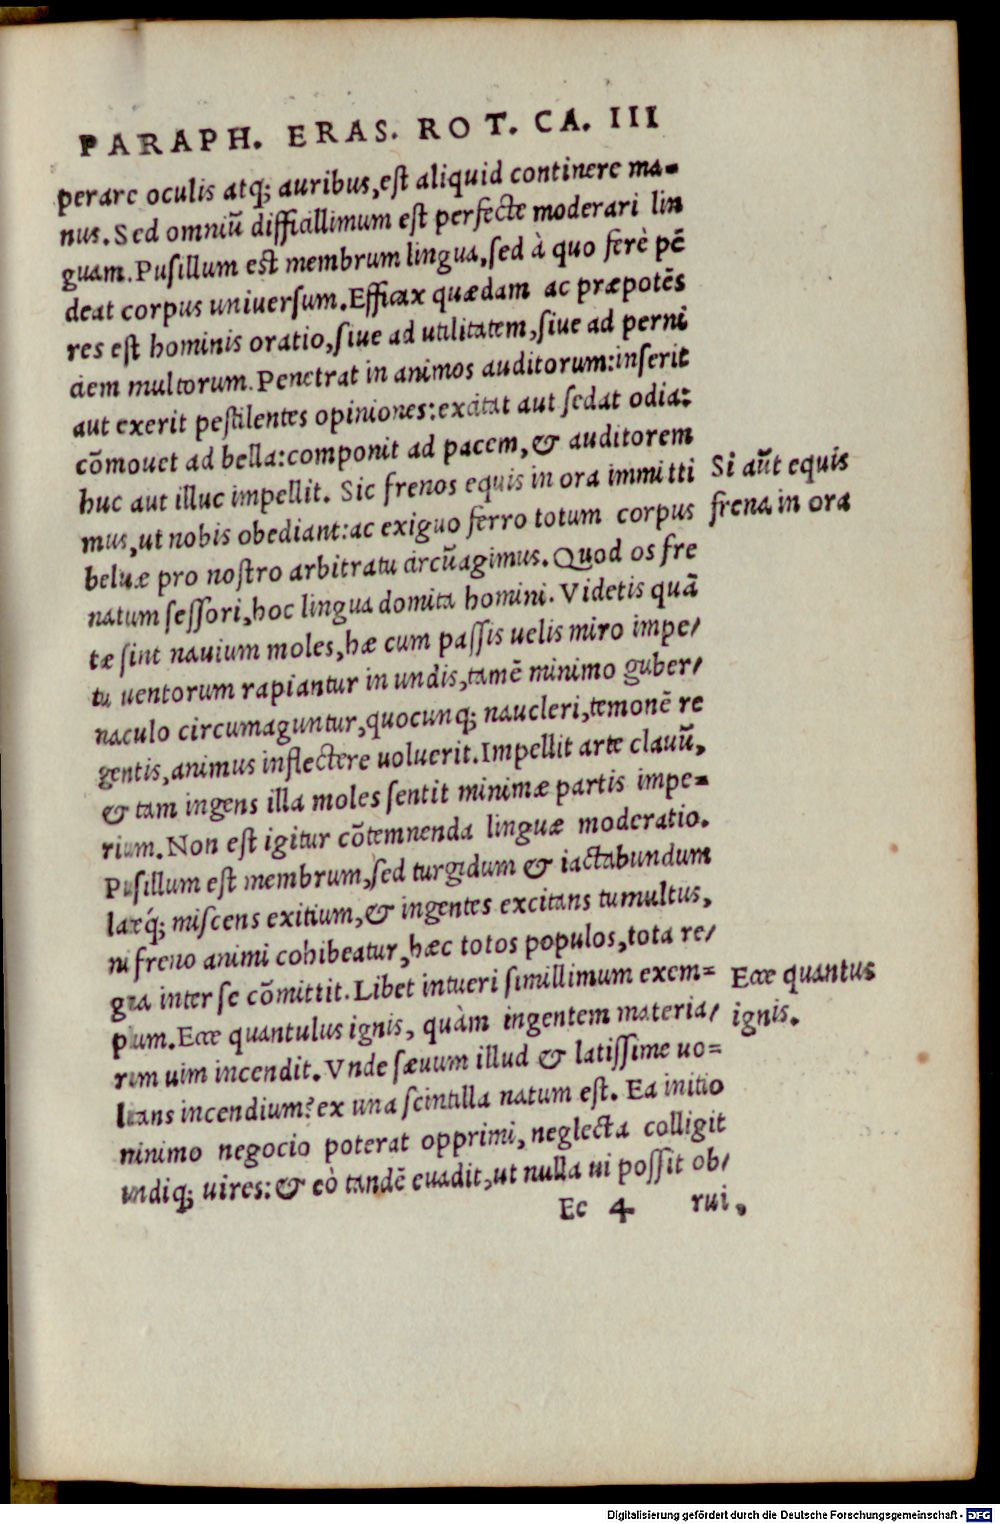 PARAPH. ERAS. ROT. CA. III
perare oculis atq; auribus, est aliquid continere ma=
nus. Sed omniū difficillimum est perfecte moderari lin
guam. Pusillum est membrum lingua, sed à quo ferè pē
deat corpus uniuersum. Efficax quædam ac præpotēs
res est hominis oratio, siue ad utilitatem, siue ad perni
ciem multorum. Penetrat in animos auditorum: inserit
aut exerit pestilentes opiniones: excitat aut sedat odia:
cōmouet ad bella: componit ad pacem, & auditorem
huc aut illuc impellit. Sic frenos equis in ora immitti
Si aūt equis
mus, ut nobis obediant: ac exiguo ferro totum corpus
frena in ora
beluæ pro nostro arbitratu circūagimus. Quod os fre
natum sessori, hoc lingua domita homini. Videtis quā
tæ sint nauium moles, hæ cum passis uelis miro impe/
tu uentorum rapiantur in undis, tamē minimo guber/
naculo circumaguntur, quocunq; naucleri, temonē re
gentis, animus inflectere uoluerit. Impellit arte clauū,
& tam ingens illa moles sentit minimæ partis impe=
rium. Non est igitur cōtemnenda linguæ moderatio.
Pusillum est membrum, sed turgidum & iactabundum
lateq́; miscens exitium, & ingentes excitans tumultus,
ni freno animi cohibeatur, hæc totos populos, tota re/
gna inter se cōmittit. Libet intueri simillimum exem=
Ecce quantus
plum. Ecce quantulus ignis, quàm ingentem materia/
ignis.
rum uim incendit. Vnde sæuum illud & latissime uo=
litans incendium? ex una scintilla natum est. Ea initio
minimo negocio poterat opprimi, neglecta colligit
undiq; uires: & eò tandē euadit, ut nulla ui possit ob/
Ee 4 rui,
Digitalisierung gefördert durch die Deutsche Forschungsgemeinschaft - DFG